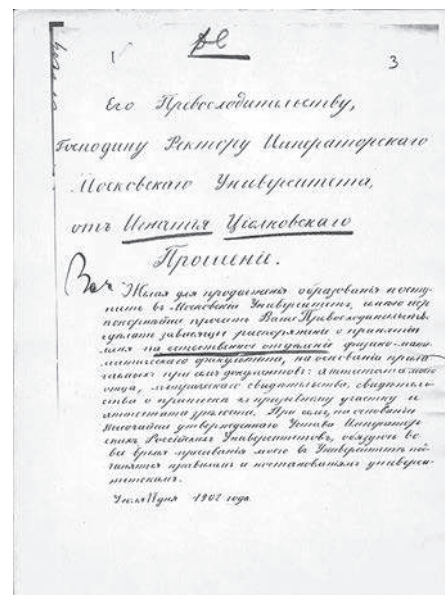 1 3
Его Превосходительству,
Господину Ректору Императорскаго
Московскаго Университета,
отъ Игнатія Ціолковскаго
Прошеніе.
Желая для продолженія образованія посту-
пить въ Московскій Университетъ, имѣю
покорнѣйше просить Ваше Превосходительство
сдѣлать зависящее распоряженіе о принятіи
меня на естественное отдѣленіе физико-мате-
матическаго факультета, на основаніи прила-
гаемыхъ при семъ документовъ: аттестата моего
отца, метрическаго свидѣтельства, свидѣтель-
ства о припискѣ къ призывному участку и
аттестата зрѣлости. При семъ, на основаніи
Высочайше утвержденнаго Устава Император-
скихъ Россійскихъ Университетовъ, обязуюсь во
все время пребыванія моего въ Университетѣ под-
чиняться правиламъ и постановленіямъ универси-
тетскимъ.
Іюля дня 1902 года.